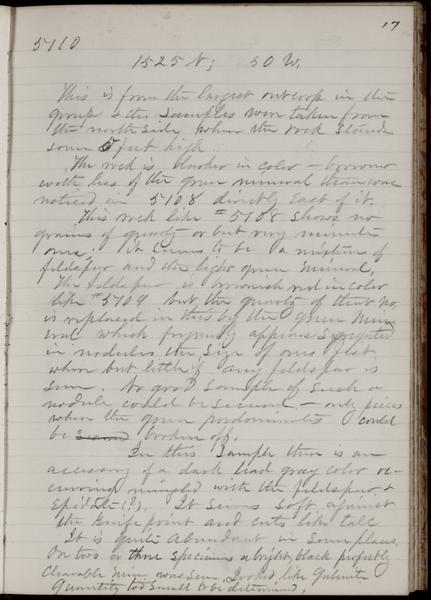 17
5110
1525 N; 50 W,
This is from the largest outcrop in the
group & the samples were taken from
the north side, where the rock stands
some 5 feet high.
The rock is darker in color – browner
with less of the green mineral than was
noticed in 5108 directly East of it.
This rock like #5108 shows no
grains of quartz or but very minute
ones: it seems to be a mixture of
feldspar and the light green mineral.
The feldspar is brownish red in color
like #5109 but the quartz of that no.
is replaced in this by the green min
eral which frequently appears segregated
in nodules the size of ones fist,
when but little if any feldspar is
seen. No good sample of such a
nodule could be secured – only pieces
where the green predominates could
be broken off.
In this sample there is an
accessory of a dark lead gray color oc-
curring mingled with the feldspar &
Epidote (?). It seems soft against
the knife point and cuts like talc
It is quite abundant in some places.
On two or three specimens a bright, black perfectly
cleavable min. was seen. Looked like
Quantity too small to be determined.